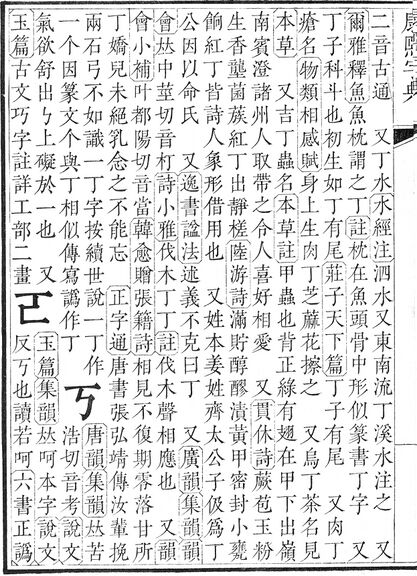 二音古通　又丁水水經注泗水又東南流丁溪水注之　又
爾雅釋魚魚枕謂之丁註枕在魚頭骨中形似篆書丁字　又
丁子科斗也初生如丁有尾莊子天下篇丁子有尾　又肉丁
瘡名物類相感賦身上生肉丁芝蔴花擦之　又烏丁茶名見
本草　又吉丁蟲名本草註甲蟲也背正綠有翅在甲下出嶺
南賓澄諸州人取帶之令人喜好相愛　又貫休詩蕨苞玉粉
生香壟菌蔟紅丁出靜槎陸游詩滿貯醇醪漬黃甲密封小甕
餉紅丁皆詩人象形借用也　又姓本姜姓齊太公子伋爲丁
公因以命氏　又逸書謚法述義不克曰丁　又廣韻集韻韻
會𠀤中莖切音朾詩小雅伐木丁丁註伐木聲相應也　又韻
會小補叶都陽切音當韓愈贈張籍詩相見不復期零落甘所
丁嬌兒未絕乳念之不能忘　正字通唐書張弘靖傳汝輩挽
兩石弓不如識一丁字按續世說一丁作
一个因篆文个與丁相似傳寫譌作丁
丂
唐韻集韻𠀤苦
浩切音考說文
氣欲舒出㇉上礙於一也　又
玉篇古文巧字註詳工部二畫
𠀀
玉篇集韻𠀤呵本字說文
反丂也讀若呵六書正譌